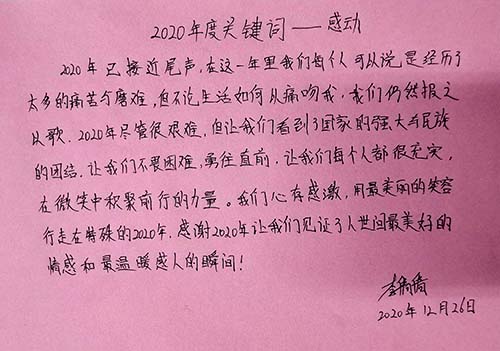 2020年度关键词——感动
2020年已接近尾声,在这一年里我们每个人可以说是经历了
太多的痛苦与磨难,但不论生活如何从痛吻我,我们仍然报之
以歌.2020年尽管很艰难,但让我们看到了国家的强大与民族
的团结,让我们不畏困难,勇往直前,让我们每个人都很充实,
在微笑中积聚前行的力量。我们心存感激,用最美丽的笑容
行走在特殊的2020年.感谢2020年让我们见证了人世间最美好的
情感和最温暖感人的瞬间!
2020年12月26日